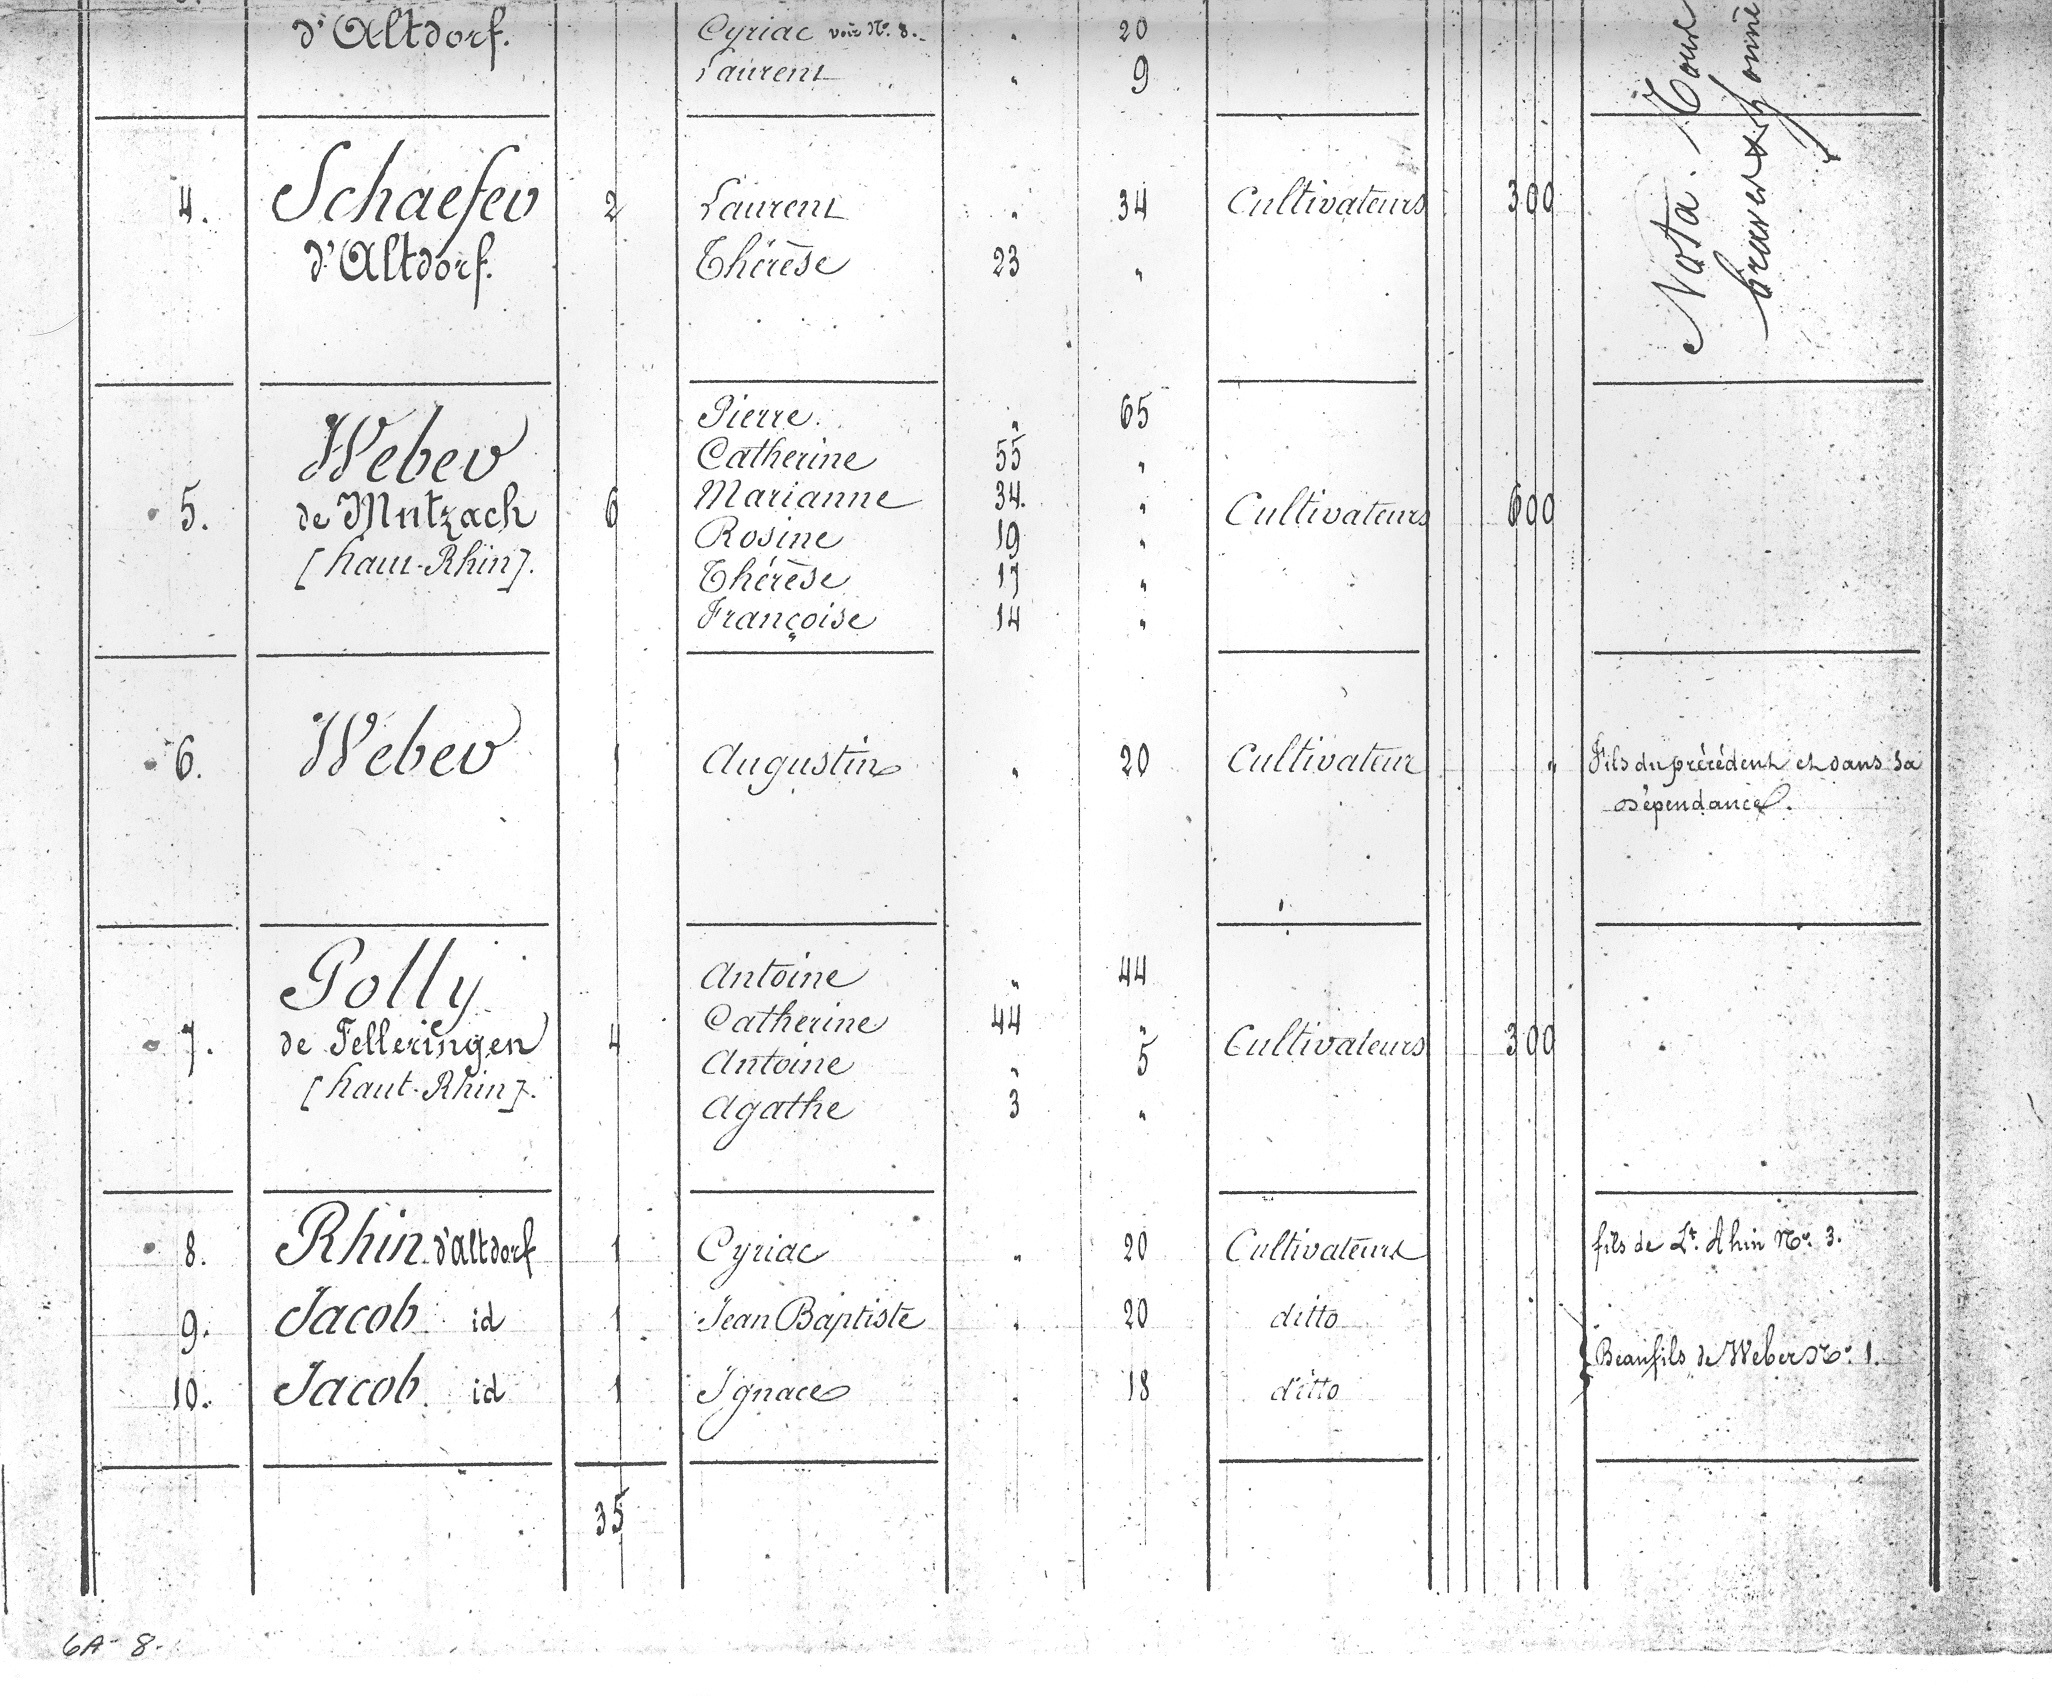 d'Altdorf.
Cyriac voir No. 8. " 20
Laurent " 9
4. Schaefer 2 Laurent " 34 Cultivateurs 300
d'Altdorf. Thérèse 23 "
Nota. Tous
braves
Pierre. " 65
Weber Catherine 55 "
5. de Mutzach 6 Marianne 34. " Cultivateurs 600
[haut-Rhin]. Rosine 19 "
Thérèse 17 "
Françoise 14 "
6. Weber 1 Augustin " 20 Cultivateur " Fils du précédent et dans sa
dépendance.
Polly Antoine " 44
7. de Felleringen 4 Catherine 44 " Cultivateurs 300
[haut-Rhin]. Antoine " 5
Agathe 3 "
8. Rhin d'altdorf 1 Cyriac " 20 Cultivateurs fils de Lt. Rhin No. 3.
9. Jacob id 1 Jean Baptiste " 20 ditto
Beaufils de Weber No. 1.
10. Jacob id 1 Ignace " 18 ditto
35
6A-8-